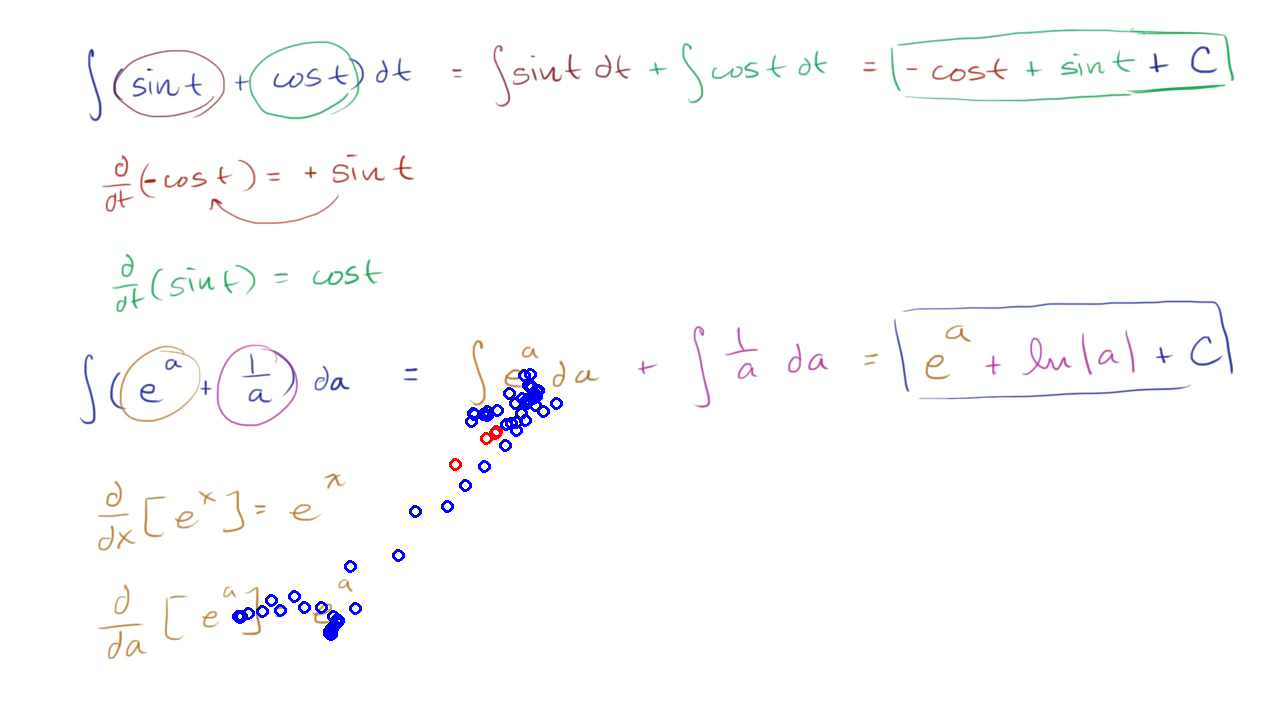 ∫(sin t + cos t) dt = ∫sin t dt + ∫cos t dt = - cos t + sin t + C
∂/∂t (-cos t) = + sin t
∂/∂t (sin t) = cos t
∫(e^a + 1/a) da = ∫ e^a da + ∫ 1/a da = e^a + ln|a| + C
∂/∂x [e^x] = e^x
∂/∂a [e^a] e^a